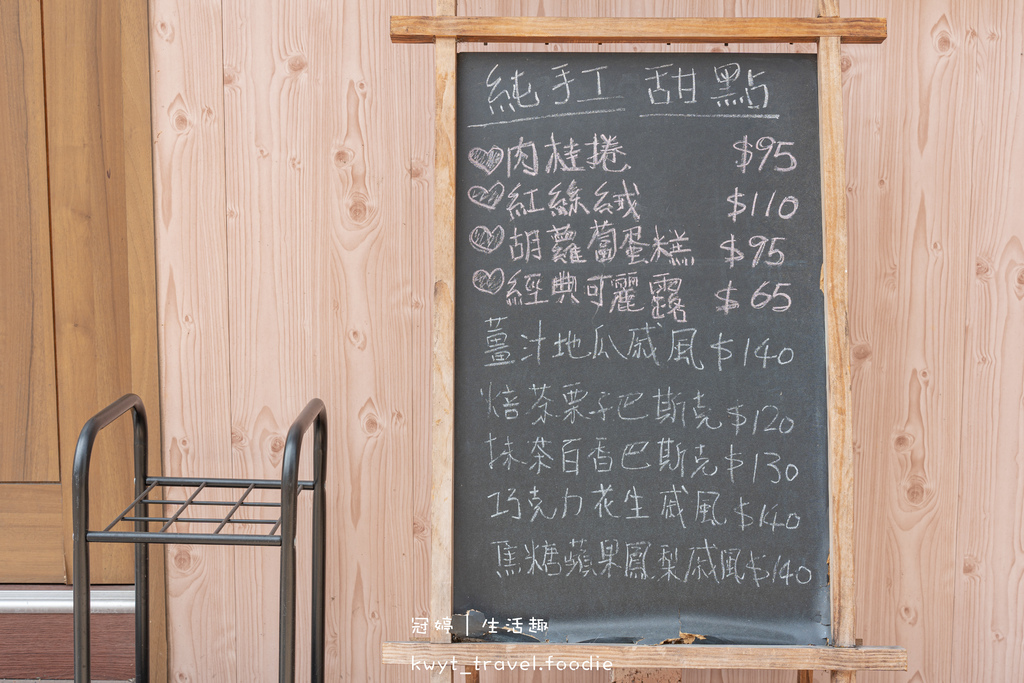 純手工 甜點
肉桂捲 $95
紅絲絨 $110
胡蘿蔔蛋糕 $95
經典可麗露 $65
薑汁地瓜戚風 $140
焙茶栗子巴斯克 $120
抹茶百香巴斯克 $130
巧克力花生戚風 $140
焦糖蘋果鳳梨戚風 $140
冠婷｜生活趣
kwyt_travel.foodie